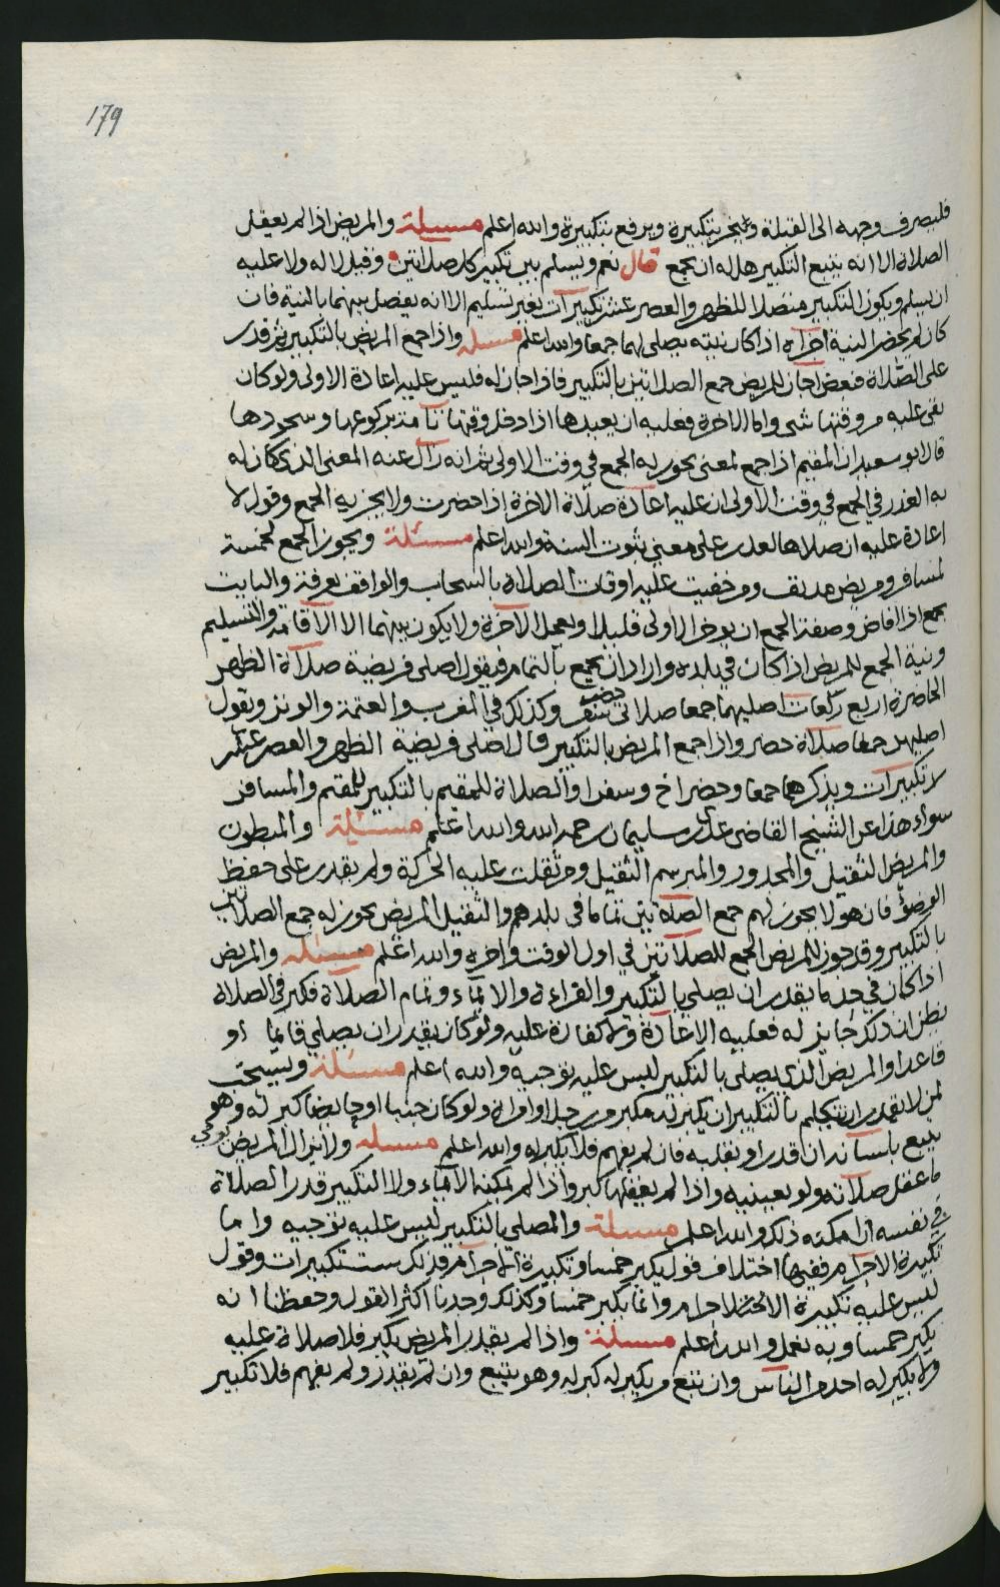 179
فليصرف وجهه الى القبلة ويخر بتكبيرة ويرفع بتكبيرة والله اعلم مسئلة والمريض اذا لم يعقل
الصلاة الا انه يتبع التكبير هل له ان يجمع قال نعم ويسلم بين تكبير كل صلاتين وقيل لا له ولا عليه
ان يسلم ويكون التكبير متصلا للظهر والعصر عشر تكبيرات بغير تسليم الا انه يفصل بينهما بالنية فان
كان لم يحضر النية اجزاه اذا كان نيته يصلي لهما جمعا والله اعلم مسئله واذا جمع المريض بالتكبير ثم قدر
على الصلاة فبعض اجاز للمريض جمع الصلاتين بالتكبير فاذا جاز له فليس عليه اعادة الاولى ولو كان
بقي عليه من وقتها شي واما الاخرة فعليه ان يعيدها اذا دخل وقتها تامة بركوعها وسجودها
قال ابو سعيد ان المقيم اذا جمع لمعنى يجوز له الجمع في وقت الاولى ثم انه زال عنه المعنى الذي كان له
به العذر في الجمع في وقت الاولى ان عليه اعادة صلاة الاخرة اذا حضرت ولا يجزيه الجمع وقول لا
اعادة عليه ان صلاها لعذر على معنى ثبوت السنة والله اعلم مسئلة ويجوز الجمع لخمسة
لمسافر ومريض مدنف ومن خفيت عليه اوقات الصلاة بالسحاب والواقف بعرفة والبايت
بجمع اذا افاض وصفة الجمع ان يوخر الاولى قليلا ويعجل الاخرة ولا يكون بينهما الا الاقامة والتسليم
ونية الجمع للمريض اذا كان في بلده واراد ان يجمع بالتمام فيقول اصلي فريضة صلاة الظهر
الحاضرة اربع ركعات اصليهما جمعا صلاتي حضر وكذلك في المغرب والعتمة والوتر ويقول
اصليهن جمعا صلاة حضر واذا جمع المريض بالتكبير قال اصلي فريضة الظهر والعصر عشر
تكبيرات ويذكرهما جمعا وحضرا وسفرا والصلاة للمقيم بالتكبير للمقيم والمسافر
سواء هذا عن الشيخ القاضي عدي بن سليمان رحمه الله والله اعلم مسئلة والمبطون
والمريض الثقيل والمجدور والمبرسم الثقيل ومن ثقلت عليه الحركة ولم يقدر على حفظ
الوضوء فان هولا يجوز لهم جمع الصلاتين تماما في بلدهم والثقيل المريض يجوز له جمع الصلاتين
بالتكبير وقد جوز للمريض الجمع للصلاتين في اول الوقت واخره والله اعلم مسئله والمريض
اذا كان في حد ما يقدر ان يصلي بالتكبير والقراءة والايماء وتمام الصلاة فكبر في الصلاة
يظن ان ذلك جايز له فعليه الاعادة ولا كفارة عليه ولو كان يقدر ان يصلي قايما او
قاعدا والمريض الذي يصلي بالتكبير ليس عليه توجيه والله اعلم مسئلة ويستحب
لمن لا يقدر ان يتكلم بالتكبير ان يكبر له مكبر من رجل او امراة ولو كان جنبا او حايضا كبر له وهو
يتبع بلسانه ان قدر او بقلبه فان لم يفهم فلا يكبر له والله اعلم مسئله ولا يزال المريض يومي
ما عقل صلاته ولو بعينيه واذا لم يعقلها كبر واذا لم يمكنه الايماء ولا التكبير قدر الصلاة
في نفسه ان امكنه ذلك والله اعلم مسئلة والمصلي بالتكبير ليس عليه توجيه واما
تكبيرة الاحرام ففيها اختلاف قول يكبر خمسا وتكبيرة الاحرام فذلك ست تكبيرات وقول
ليس عليه تكبيرة الاحرام وانما يكبر خمسا وكذلك وجدنا اكثر القول وحفظنا انه
يكبر خمسا وبه نعمل والله اعلم مسئلة واذا لم يقدر المريض يكبر فلا صلاة عليه
ولا يكبر له احد من الناس وان تبع من يكبر له كبر له وهو يتبع وان لم يقدر ولم يفهم فلا تكبير